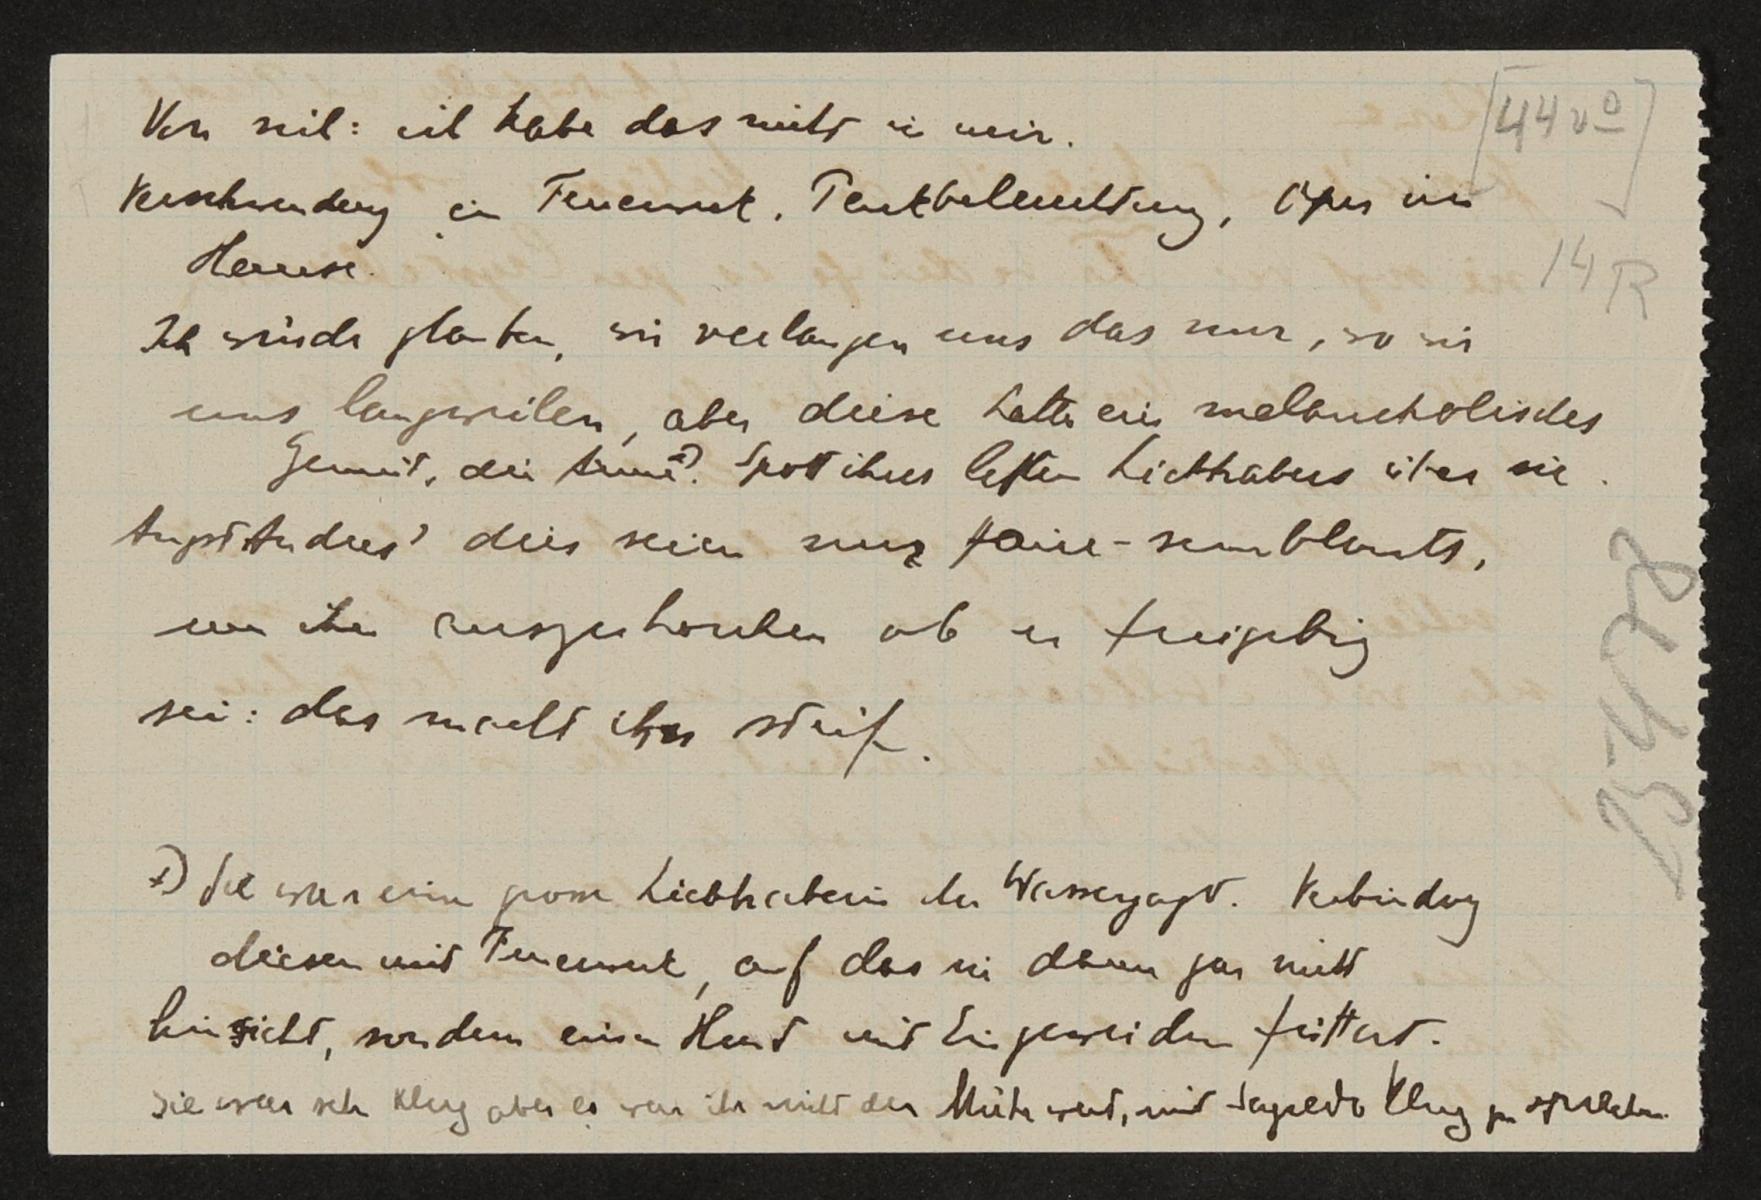 Von sich: ich habe das nicht in mir.
[44 vo]
Verschwendung in Feuerwerk, Parkbeleuchtung, Oper im
Hause.
14 R
Ich würde glauben, wir verlangen uns das nur, wo wir
uns langweilen, aber diese hatte ein melancholisches
Gemüt, die Arme x)? Spott ihres letzten Liebhabers über sie.
Angst Andres' dies seien nur faire-semblants,
um ihn auszuhorchen ob er freigebig
sei: das macht ihn steif.
x) Sie war eine grosse Liebhaberin der Wasserjagd. Verbindung
diesen mit Feuerwerk, auf das sie dann gar nicht
hinsieht, sondern einen Hund mit Eingeweiden füttert.
Sie war sehr klug aber es war ihr nicht der Mühe wert, mit Sagredo klug zu sprechen.